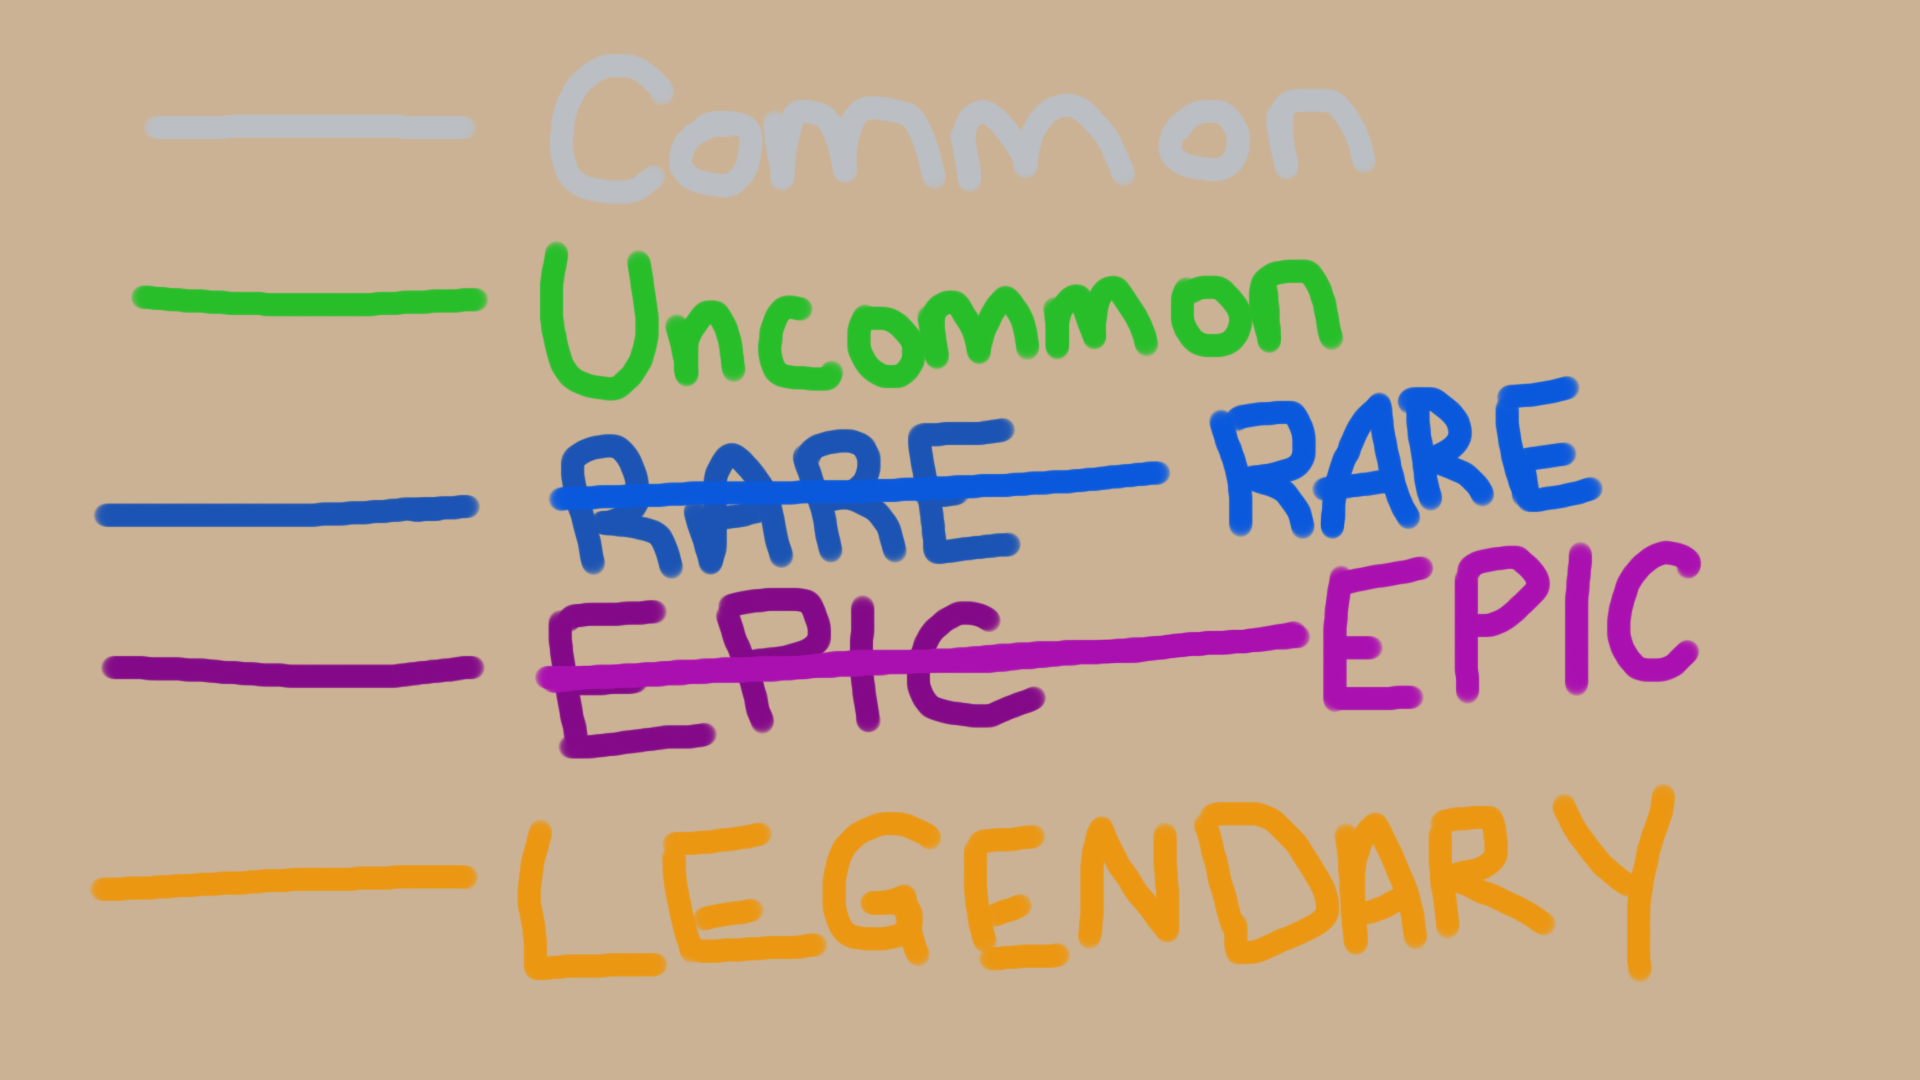 Common
Uncommon
RARE RARE
EPIC EPIC
LEGENDARY